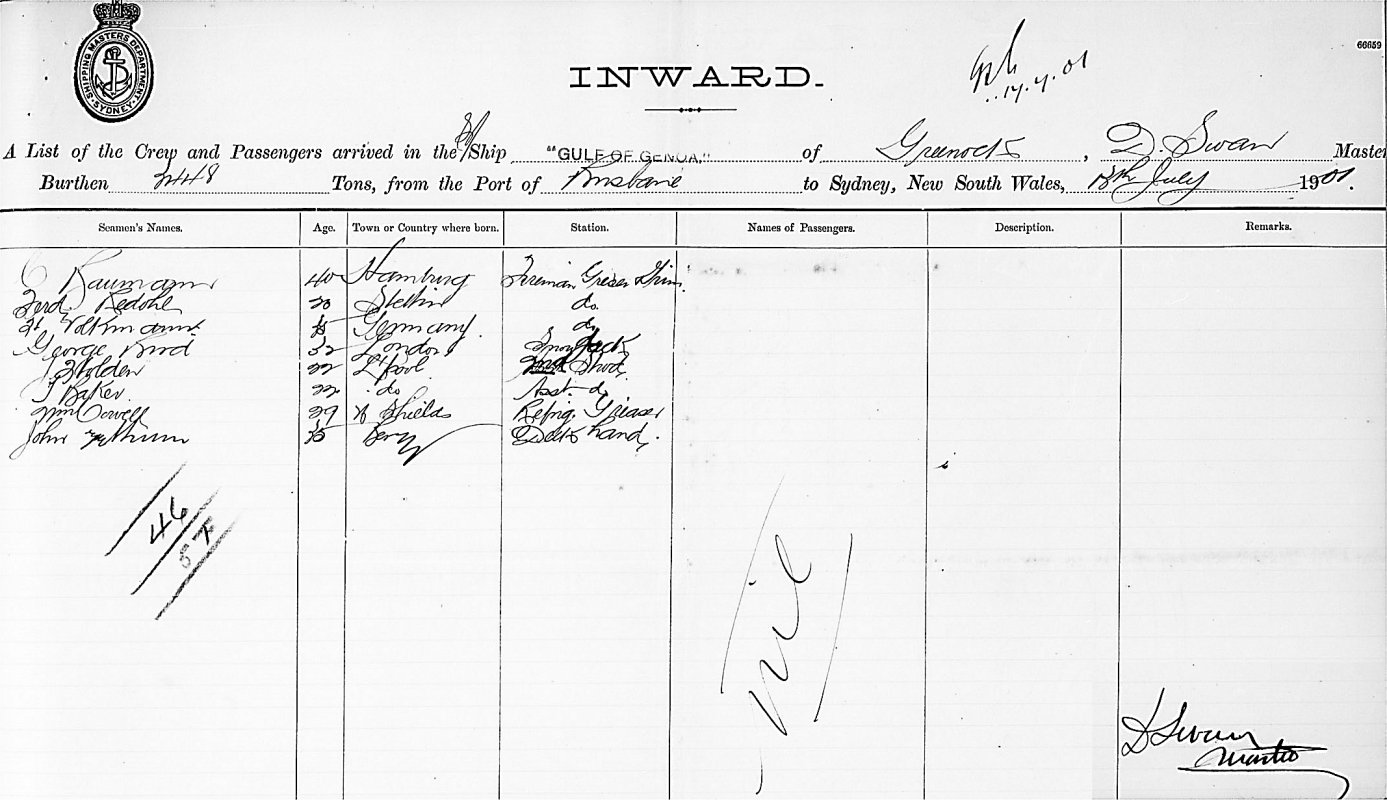 SHIPPING MASTERS DEPARTMENT. SYDNEY.
66659
INWARD.
17.7.01
A List of the Crew and Passengers arrived in the Ship "GULF OF GENOA," of Greenock, D. Swan Master
Burthen 3448 Tons, from the Port of Brisbane to Sydney, New South Wales, July 1901.
Seamen's Names. Age. Town or Country where born. Station. Names of Passengers. Description. Remarks.
40 Hamburg Fireman Greaser
Ferd. Stettin do
Volkmann Germany do
George Bird 32 London
Holden 22 L'pool
J Baker 22 do Asst. do
Wm Cowell 29 N Shields Refrig. Greaser
John Deck hand
46
57
Nil
D Swan
Master